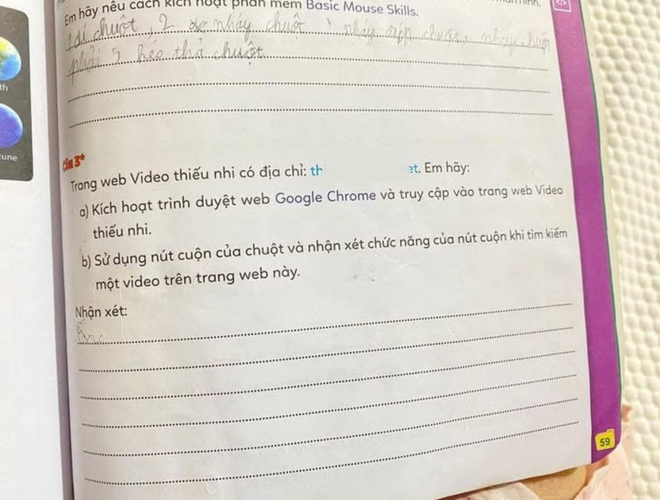 Em hãy nêu cách kích hoạt phần mềm Basic Mouse Skills.
chuột, 2 nháy chuột, nháy đúp chuột, nháy chuột
phải, kéo thả chuột
th
une
Câu 3*
Trang web Video thiếu nhi có địa chỉ: th et. Em hãy:
a) Kích hoạt trình duyệt web Google Chrome và truy cập vào trang web Video
thiếu nhi.
b) Sử dụng nút cuộn của chuột và nhận xét chức năng của nút cuộn khi tìm kiếm
một video trên trang web này.
Nhận xét:
59